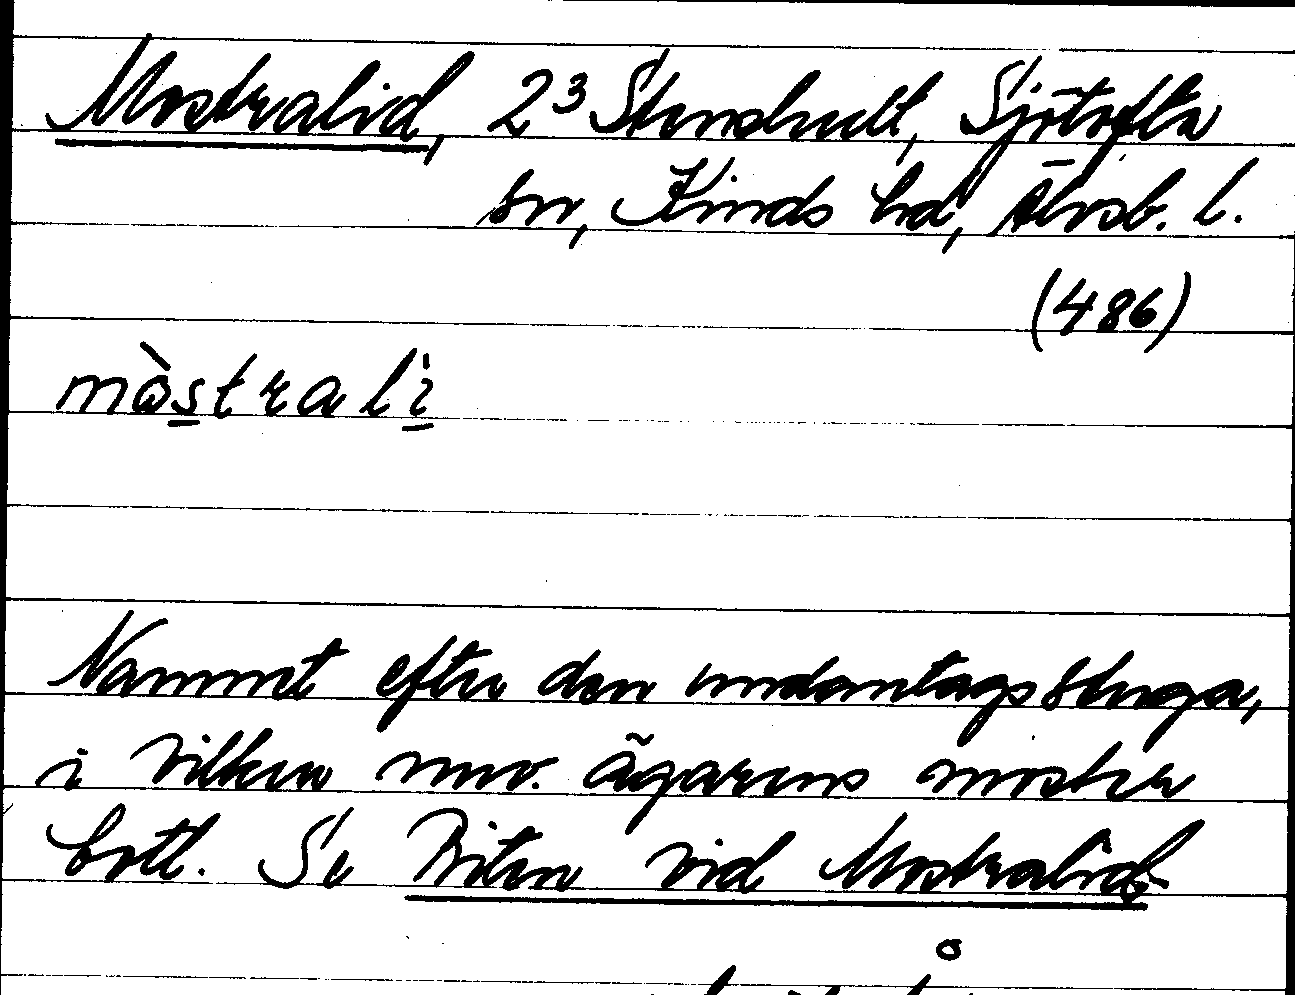 Mostralid, 2³ Stenshult, Sjötofta
sn, Kinds hd, Älvsb. l.
(486)
mòstrali
Namnet efter den undantagsstuga,
i vilken nuv. ägarens moster
bott. Se Biten vid Mostralid.